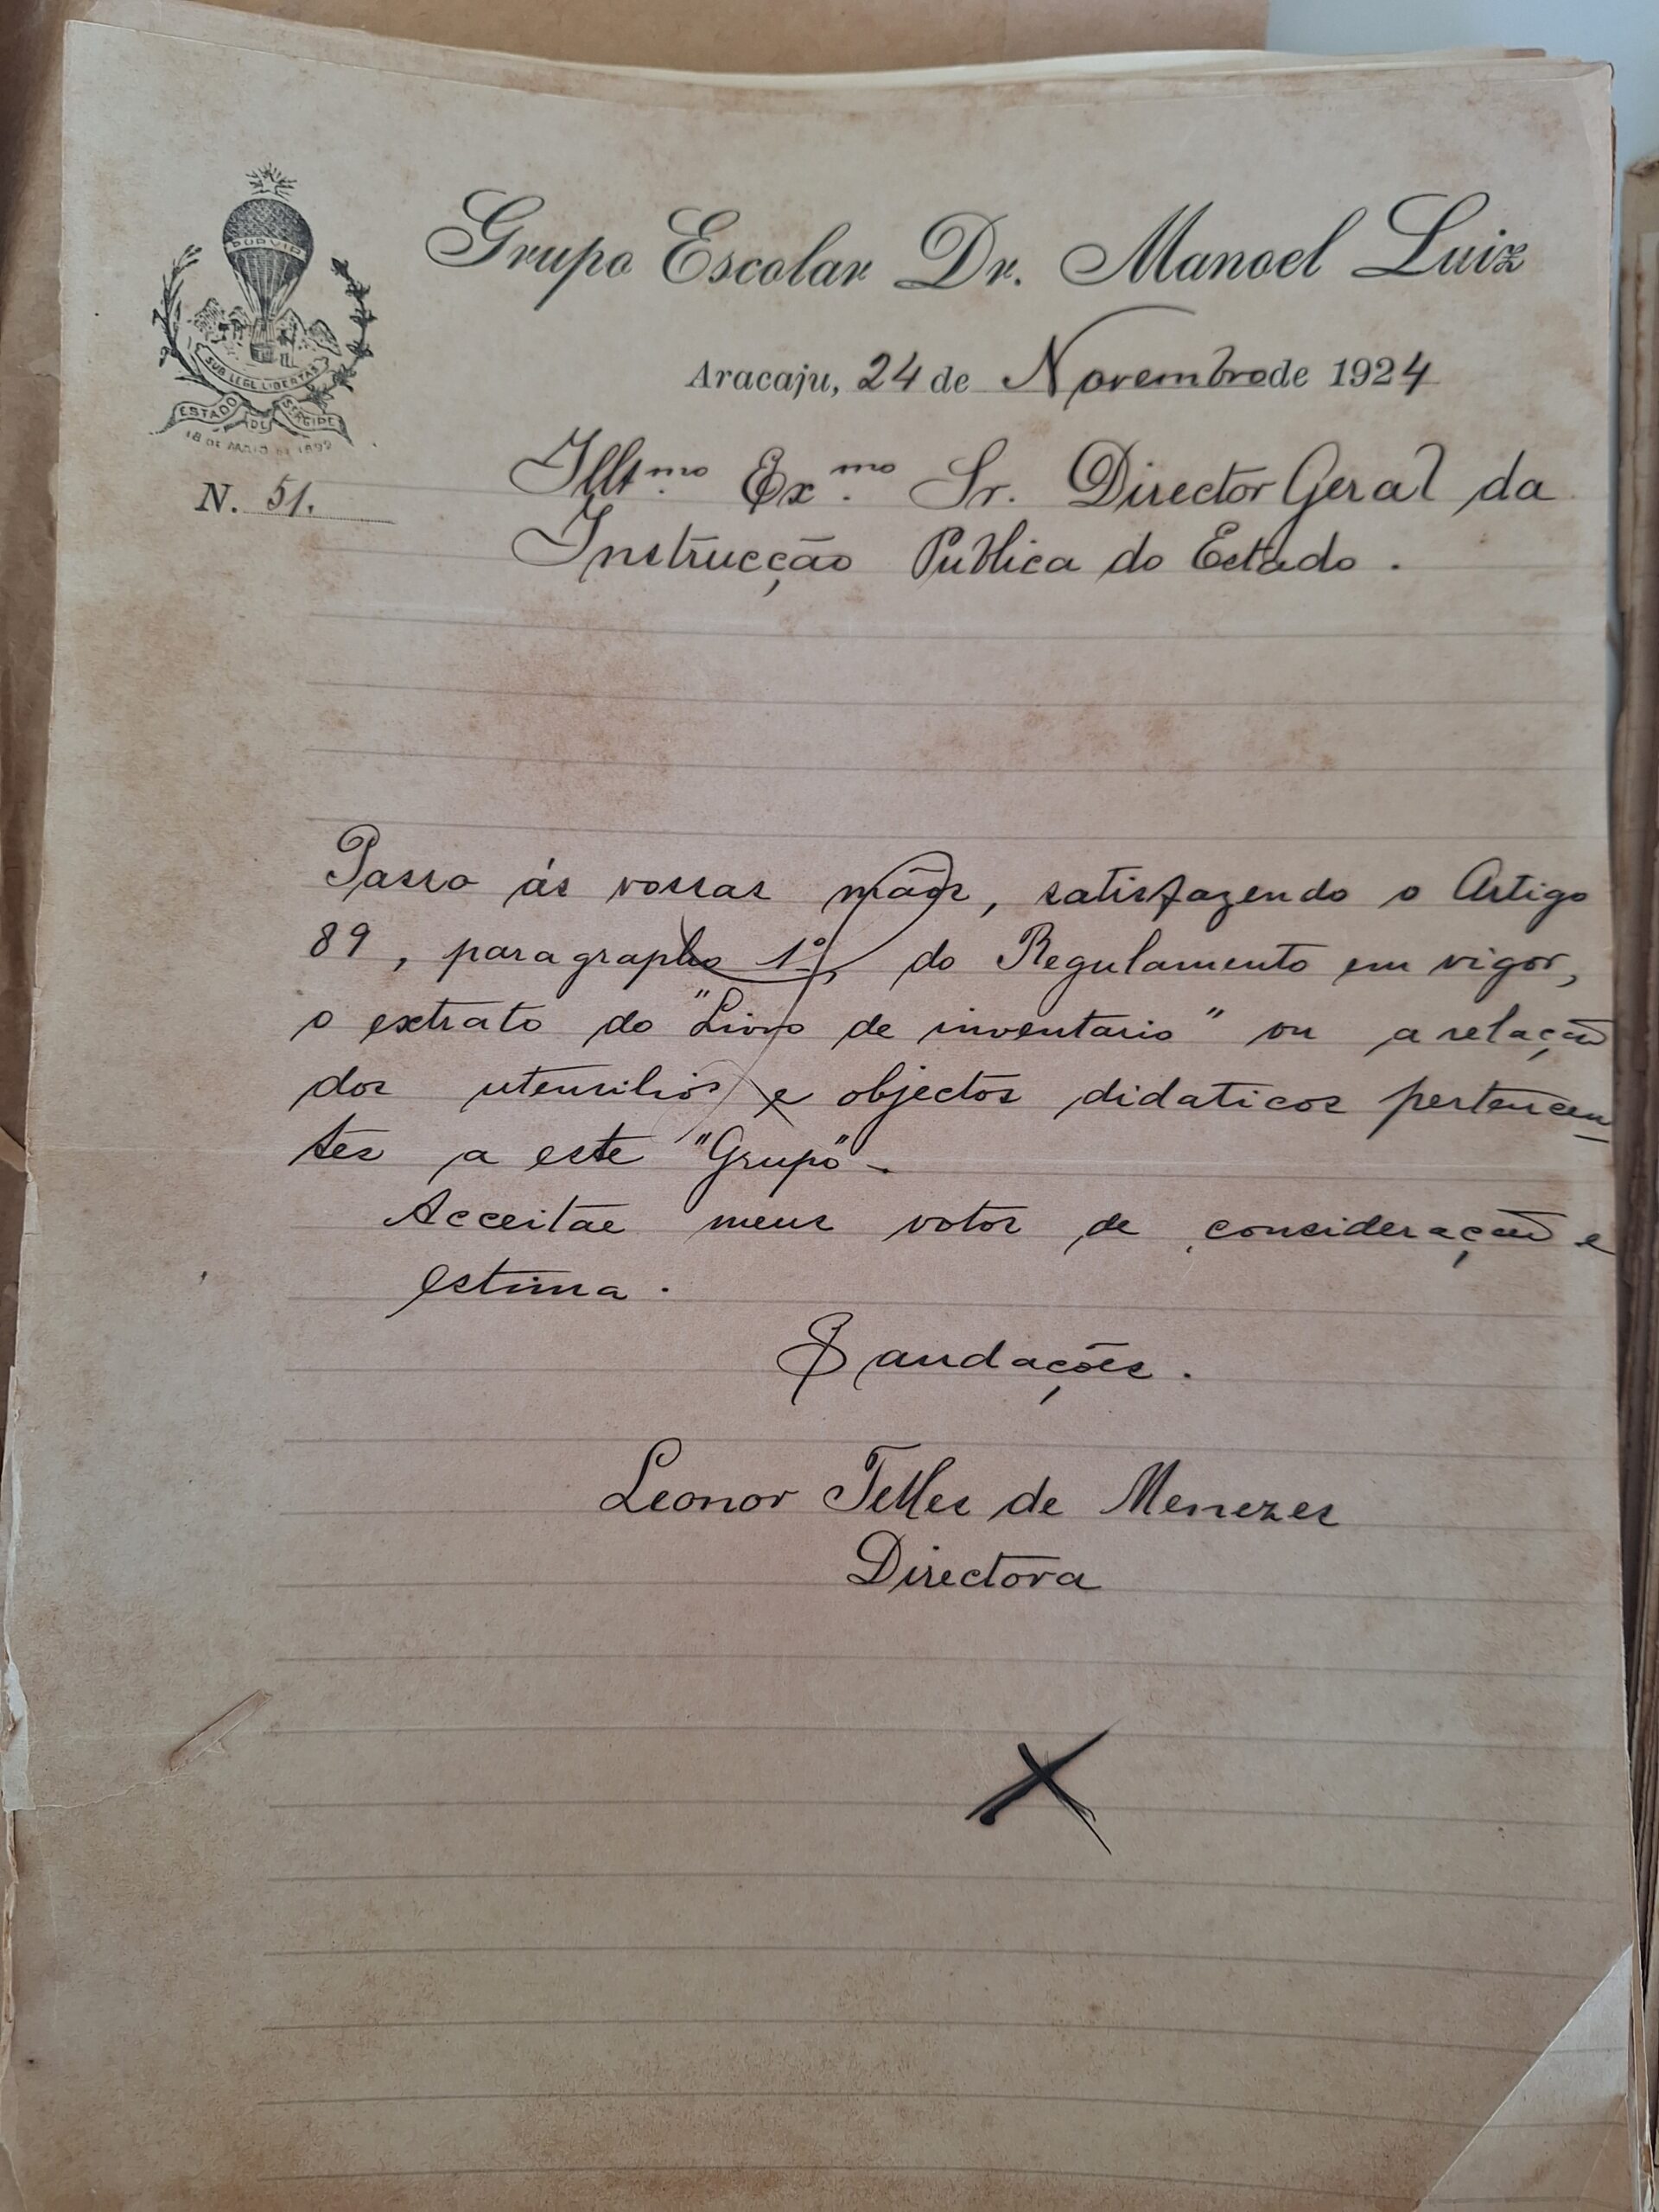 PORVIR
SUB LEGE LIBERTAS
ESTADO DE SERGIPE
18 DE MAIO DE 1892
Grupo Escolar Dr. Manoel Luiz
Aracaju, 24 de Novembro de 1924
N. 51.
Illmo. Exmo. Sr. Director Geral da
Instrucção Publica do Estado.
Passo ás vossas mãos, satisfazendo o Artigo
89, paragrapho 1º, do Regulamento em vigor,
o extrato do "Livro de inventario" ou a relação
dos utensilios e objectos didaticos pertencen-
tes a este "Grupo".
Acceitae meus votos de consideração e
estima.
Saudações.
Leonor Telles de Menezes
Directora